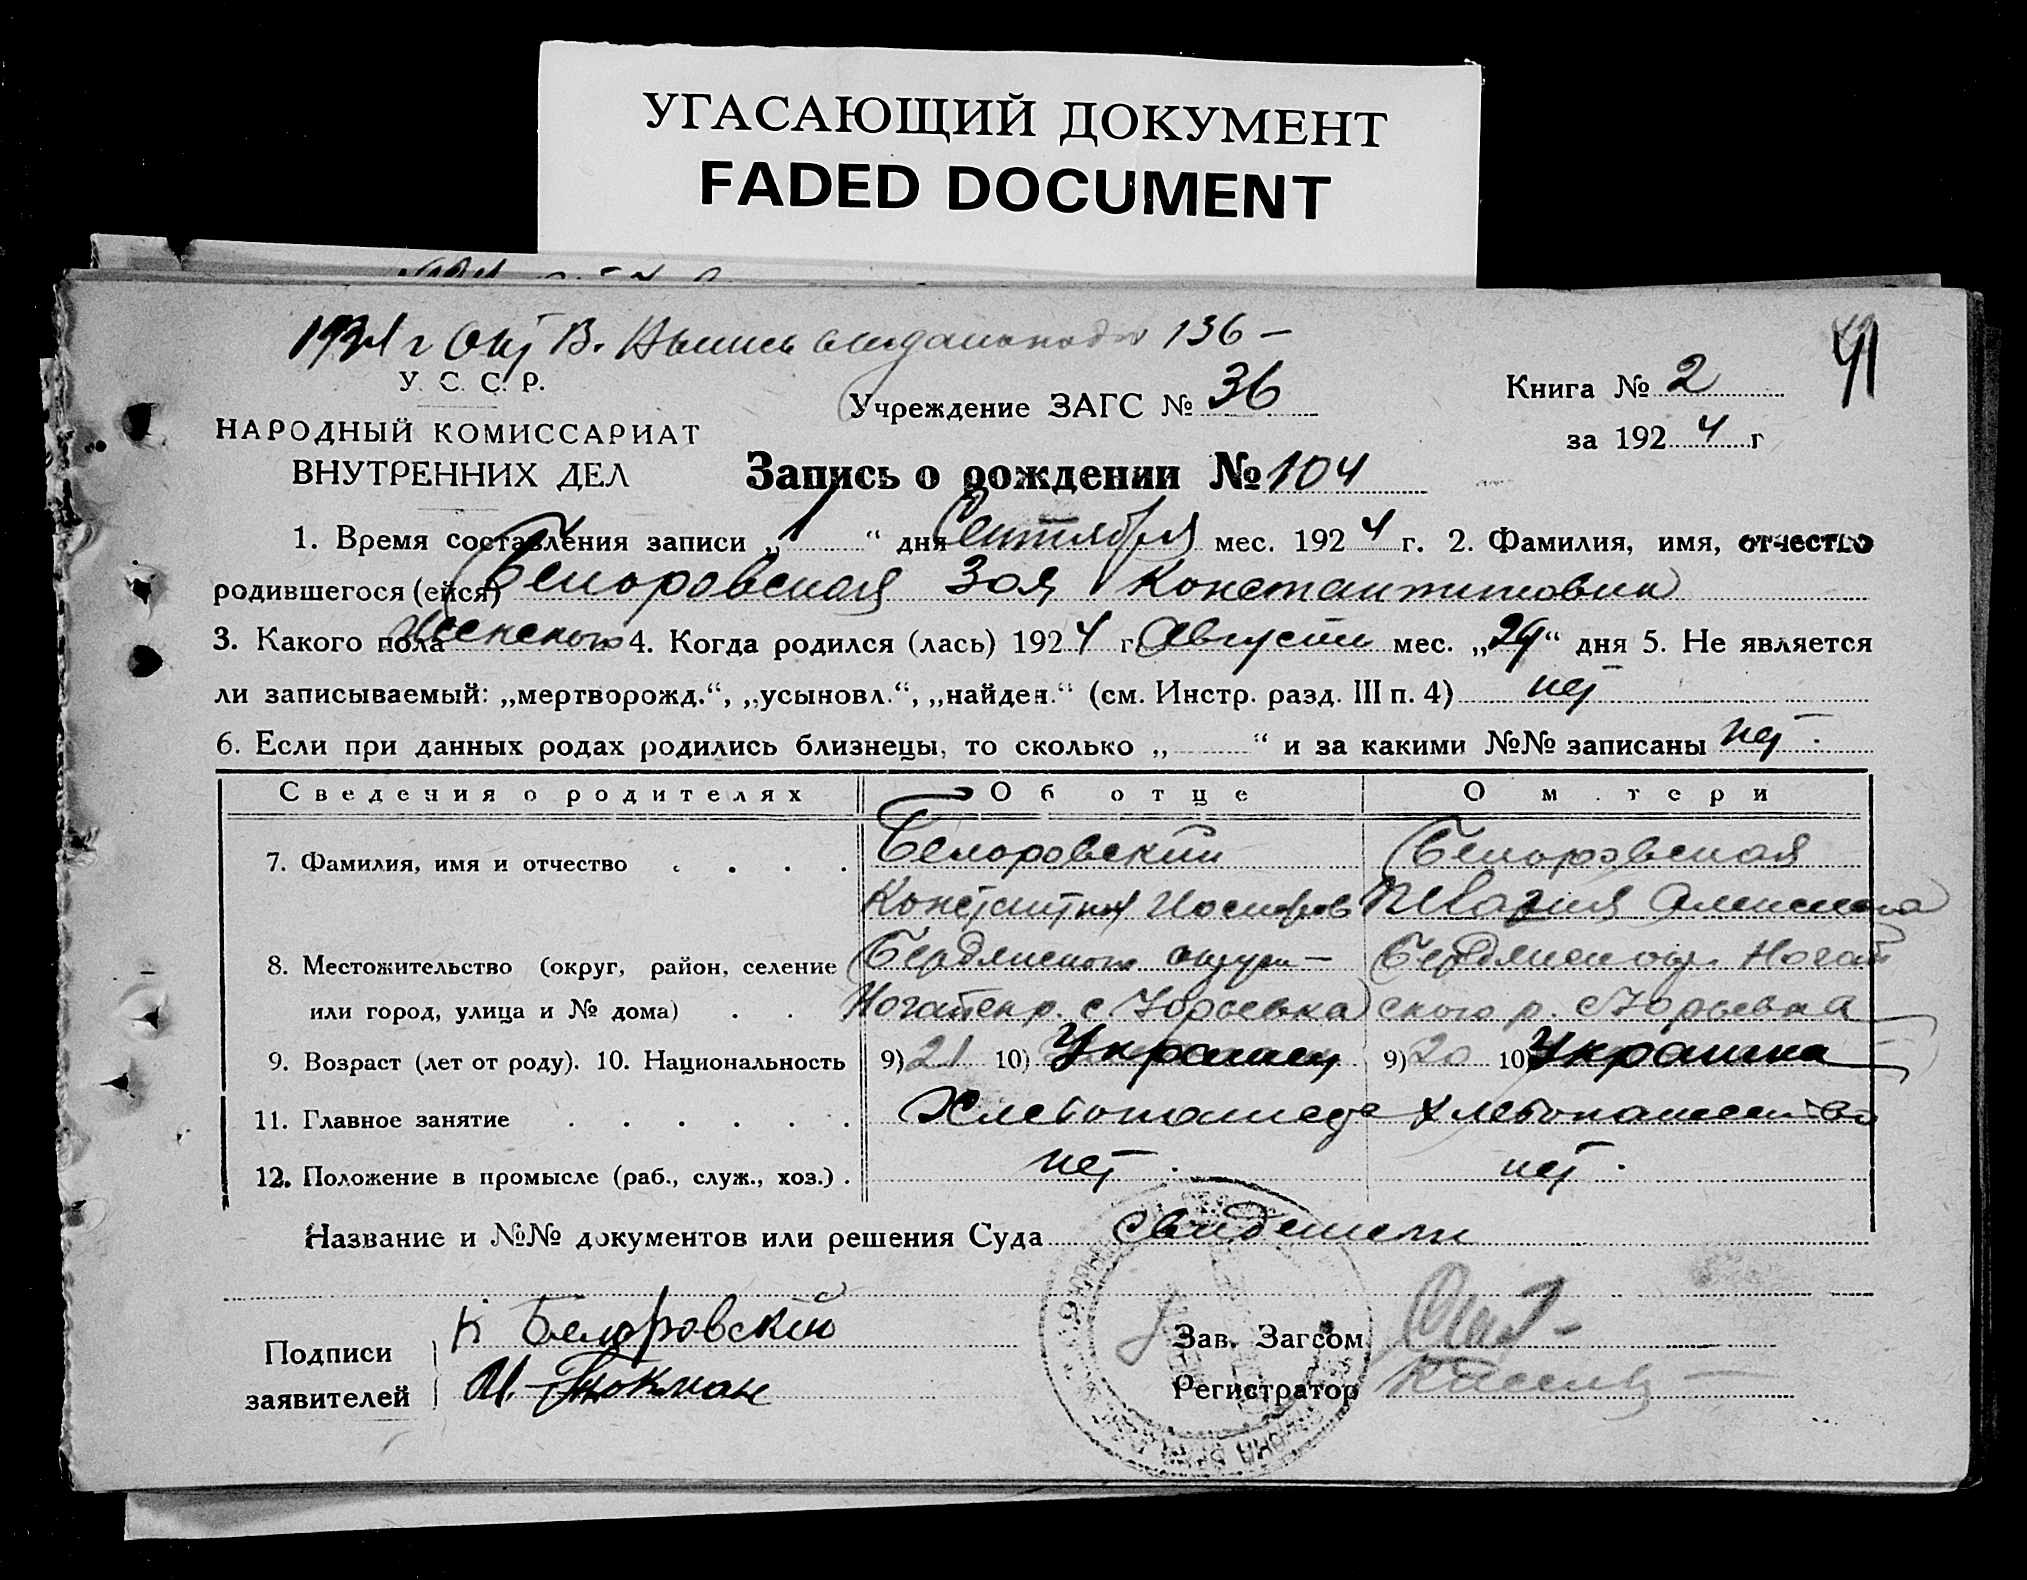 УГАСАЮЩИЙ ДОКУМЕНТ
FADED DOCUMENT
136 —
У. С. С. Р.
НАРОДНЫЙ КОМИССАРИАТ
ВНУТРЕННИХ ДЕЛ
Учреждение ЗАГС № 36
Книга № 2
41
за 1924 г
Запись о рождении № 104
1. Время составления записи „1“ дня Сентября мес. 1924 г. 2. Фамилия, имя, отчество
родившегося (ейся) Белоровская Зоя Константиновна
3. Какого пола Женского 4. Когда родился (лась) 1924 г. Августа мес. „29“ дня 5. Не является
ли записываемый: „мертворожд.“, „усыновл.“, „найден.“ (см. Инстр. разд. III п. 4) нет
6. Если при данных родах родились близнецы, то сколько „ “ и за какими №№ записаны нет.
Сведения о родителях Об отце О м.тери
7. Фамилия, имя и отчество . . . . Белоровский Белоровская
Константин Иосифов Мария Алексеевна
8. Местожительство (округ, район, селение Бердянского округа — Бердянск окр. Ногай
или город, улица и № дома) . . Ногайск р. с Юрьевка ского р. с Юрьевка
9. Возраст (лет от роду). 10. Национальность 9) 21 10) Украинец 9) 20 10) Украинка
11. Главное занятие . . . . . . Хлебопашец хлебопашество
12. Положение в промысле (раб., служ., хоз.) . нет. нет.
Название и №№ документов или решения Суда свидетели
Подписи
заявителей
К Белоровский
И. Токмак
Зав. Загсом
Регистратор